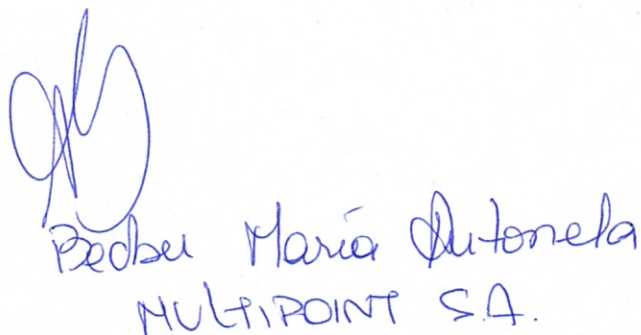 María Antonela
MULTIPOINT S.A.